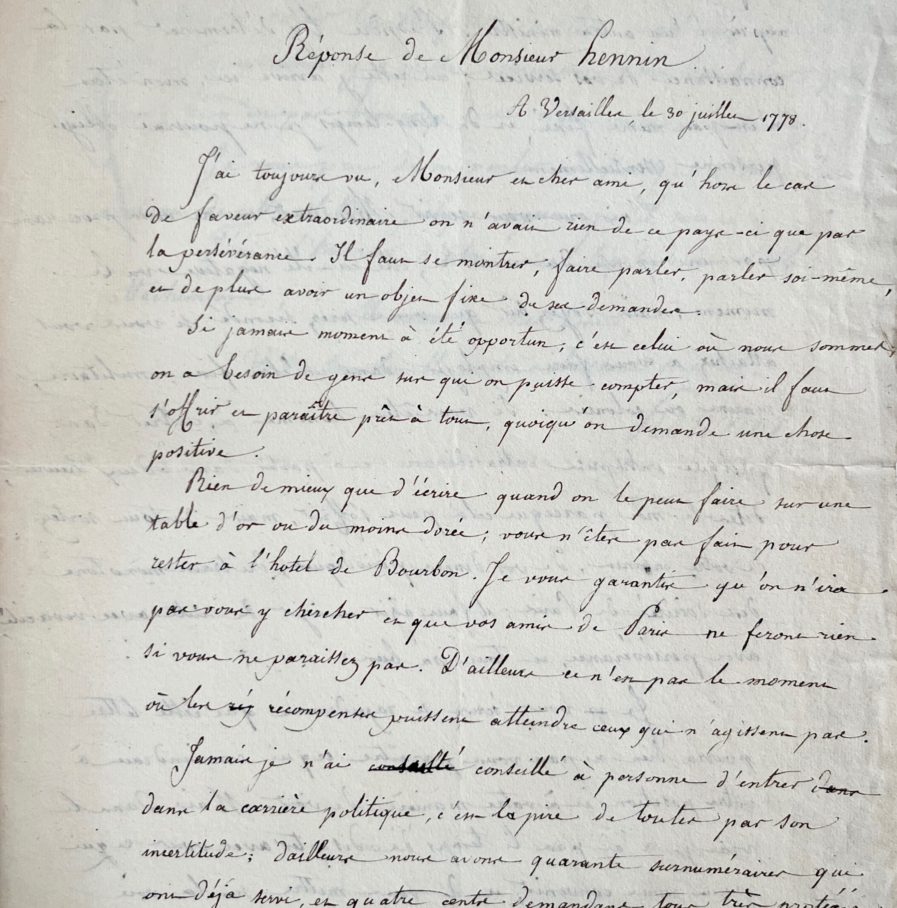 Réponse de Monsieur hennin
A Versailles, le 30 juillet 1778.
J'ai toujours vu, Monsieur et cher ami, qu'hors le cas
de faveur extraordinaire on n'avait rien de ce pays-ci que par
la persévérance. Il faut se montrer, faire parler, parler soi-même,
et de plus avoir un objet fixe de ses demandes.
Si jamais moment à été opportun, c'est celui où nous sommes,
on a besoin de gens sur que on puisse compter, mais il faut
s'offrir et paraître prêt à tout, quoiqu'on demande une chose
positive.
Rien de mieux que d'écrire quand on le peut faire sur une
table d'or ou du moins dorée; vous n'êtes pas fait pour
rester à l'hotel de Bourbon. Je vous garantis qu'on n'ira
pas vous y chercher et que vos amis de Paris ne feront rien
si vous ne paraissez pas. D'ailleurs ce n'est pas le moment
où les réj récompenses puissent atteindre ceux qui n'agissent pas.
Jamais je n'ai conseillé à personne d'entrer dans
dans la carrière politique, c'est la pire de toutes par son
incertitude; d'ailleurs nous avons quarante surnuméraires qui
ont déjà servi, et quatre cents demandans tous très protégés